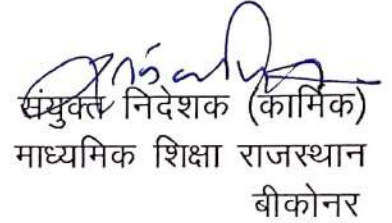 संयुक्त निदेशक (कार्मिक)
माध्यमिक शिक्षा राजस्थान
बीकोनर